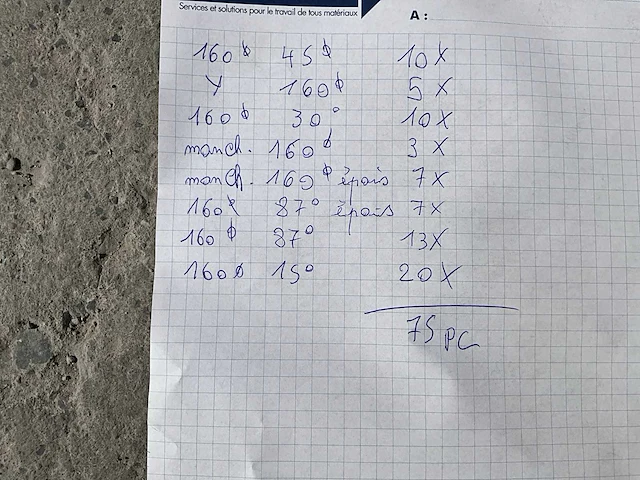 Services et solutions pour le travail de tous matériaux
A :
160 φ 45 φ 10 X
Y 160 φ 5 X
160 φ 30° 10 X
manch. 160 φ 3 X
manch. 160 φ épais 7 X
160 φ 87° épais 7 X
160 φ 87° 13 X
160 φ 15° 20 X
75 PC